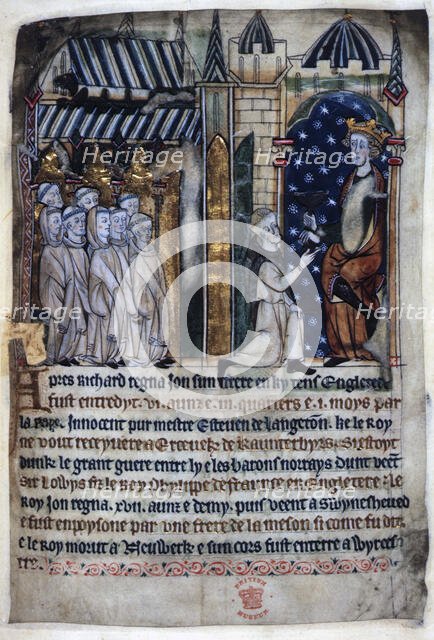 Heritage Heritage
Heritage Heritage
Heritage Heritage
Apres Richard regna Jon sun frere en ky tens Engletere
fust entredyt .vi. aunz e .iii. quarters e .i. moys par
la Pape Innocent pur mestre Esteven de Langeton. ke le Roy
ne vout receyvere a Erceveke de Kaunterbyrs. si estoyt
dunk le grant guere entre ly e les barons norrays dunt veent
sir Lowys fiz le Roy Phylipe de fraunce en Engletere : le
Roy Jon regna .xvii. aunz e demy. puis veent a Swyneshened
e fust enpoysone par une frere de la meson si come fu dit
e le Roy morut a Neuwerk e sun cors fust enterre a Wyrces-
tre.
BRITISH
MUSEUM